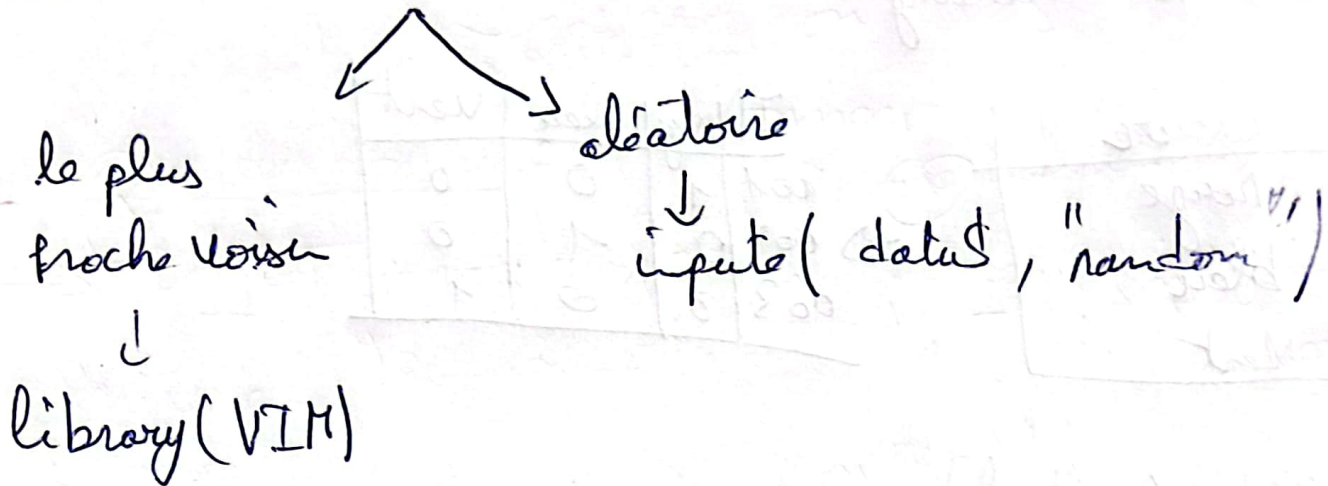 le plus
proche voisin
library(VIM)
aléatoire
impute( data$, "random")